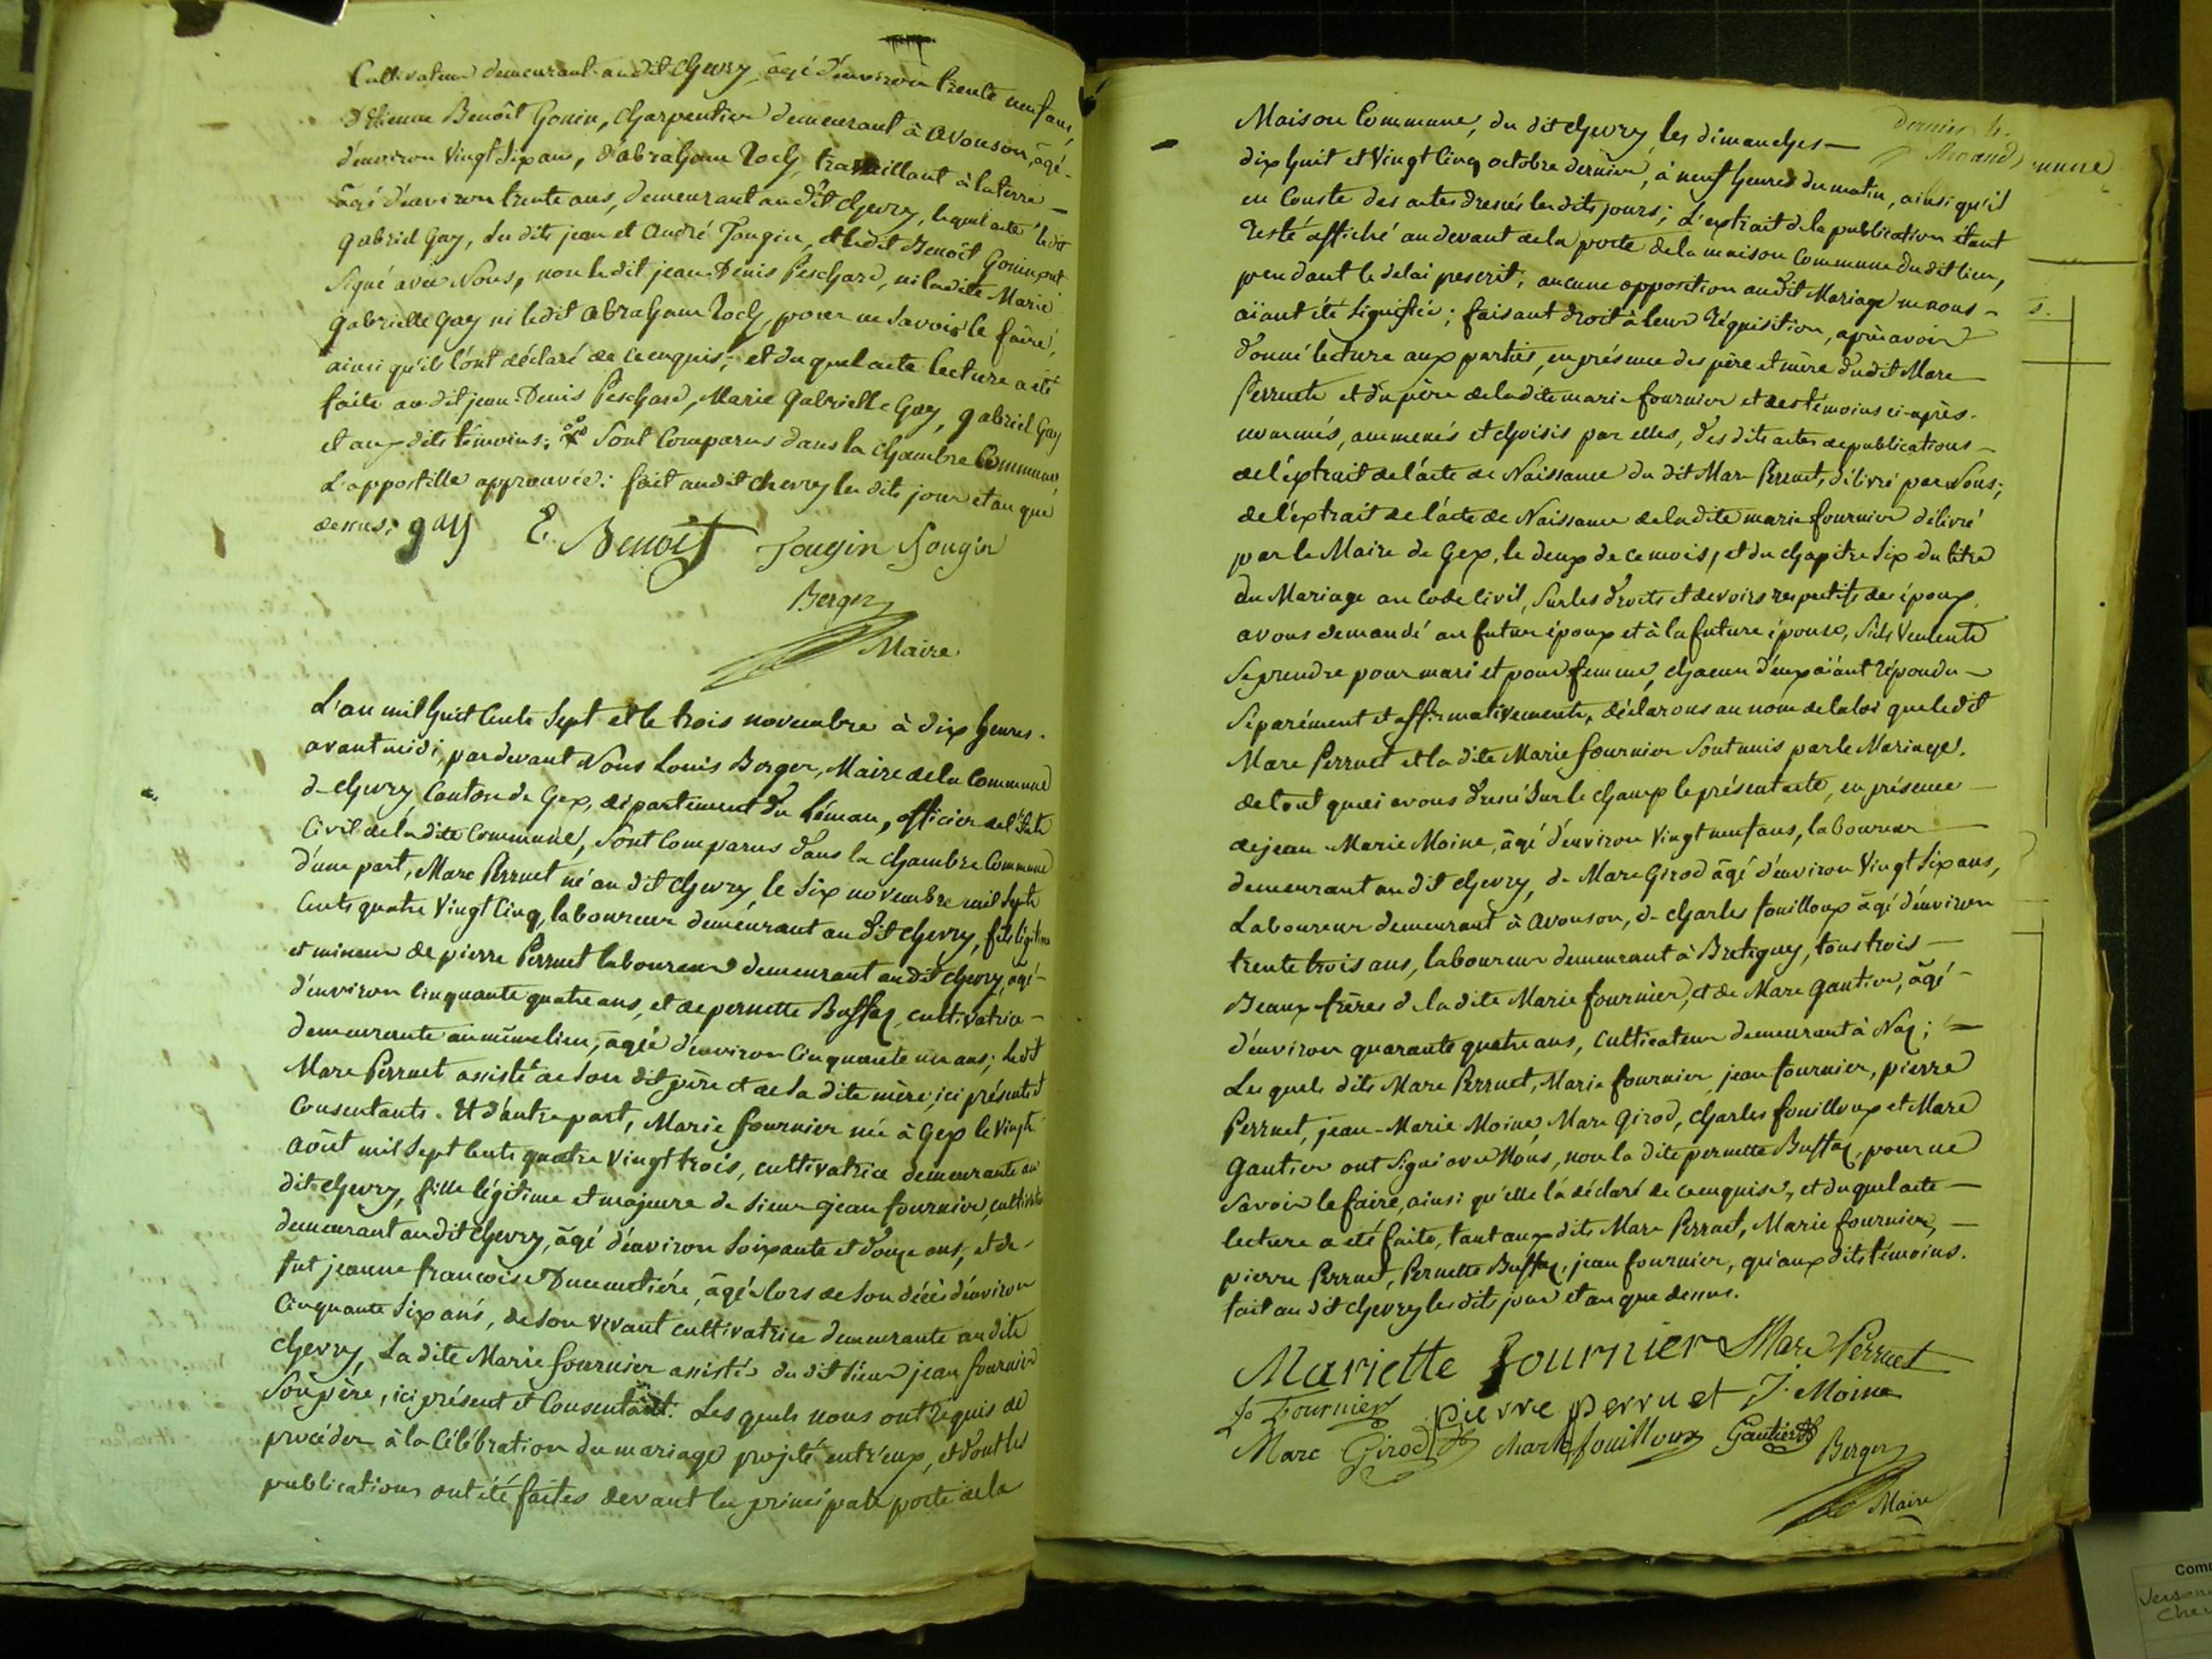 Cultivateur demeurant audit chevry, âgé d'environ trente neuf ans,
d'Etienne Benoît Gonin, charpentier demeurant à avouson, âgé
d'environ vingt six ans, d'abraham Roch, travaillant à la terre
âgé d'environ trente ans, demeurant audit chevry, lequel acte ledit
gabriel Gay, les dits jean et andré Tougin, et ledit Benoît Gonin ont
signé avec Nous, non ledit jean-Denis Peschard, ni ladite Marie
gabrielle Gay ni ledit abraham Roch, pour ne savoir le faire,
ainsi qu'ils l'ont déclaré de ce enquis, et du quel acte lecture a été
faite audit jean-Denis Peschard, Marie gabrielle Gay, gabriel Gay
et aux dits témoins: sont Comparus dans la chambre Commune
L'appostille approuvée: fait audit chevry les dits jour et an que
dessus: gay E. Benoit Tougin Tougin
Berger
Maire
L'an mil huit Cents Sept et le trois novembre à dix heures
avant midi, pardevant Nous Louis Berger, Maire de la Commune
de chevry Canton de Gex, département du Léman, officier de l'Etat
Civil de la dite Commune, sont Comparus dans la chambre Commune
d'une part, Marc Perruet né audit chevry, le six novembre mil Sept
Cents quatre Vingt Cinq, laboureur demeurant audit chevry, fils légitime
et mineur de pierre Perruet laboureur demeurant audit chevry, âgé
d'environ Cinquante quatre ans, et de pernette Buffaz, cultivatrice
demeurante au même lieu, âgée d'environ Cinquante un ans; ledit
Marc Perruet assisté de son dit père et de la dite mère, ici présents et
Consentants. Et d'autre part, Marie fournier née à Gex le Vingt
août mil Sept Cents quatre Vingt trois, cultivatrice demeurante au
dit chevry, fille légitime et majeure de sieur jean fournier, cultivateur
demeurant audit chevry, âgé d'environ Soixante et douze ans, et de
fut jeanne françoise Ducimetière, âgée lors de son décès d'environ
Cinquante Six ans, de son vivant cultivatrice demeurante au dite
chevry, La dite Marie fournier assistée du dit sieur jean fournier
Son père, ici présent et Consentant. Les quels nous ont requis de
procéder à la Célébration du mariage projeté entr'eux, et dont les
publications ont été faites devant la principale porte de la
Maison Commune, du dit chevry, les dimanches
dix huit et Vingt Cinq octobre dernier, à neuf heures du matin, ainsi qu'il
en Conste des actes dressés les dits jours; L'extrait de la publication étant
resté affiché au devant de la porte de la maison Commune du dit lieu,
pendant le delai prescrit; aucune opposition audit Mariage ne nous
aïant été signifiée; faisant droit à leur réquisition, après avoir
donné lecture aux parties, en présence des père et mère dudit Marc
Perruet et du père de la dite marie fournier et des témoins ci-après
nommés, ammenés et choisis par elles, des dits actes de publications
de l'éxtrait de l'acte de Naissance du dit Marc Perruet, délivré par Nous;
de l'éxtrait de l'acte de Naissance de la dite marie fournier délivré
par le Maire de Gex, le deux de ce mois, et du chapitre Six du titre
du Mariage au Code Civil, Sur les droits et devoirs respectifs des époux,
avons demandé au futur époux et à la future épouse, s'ils Veulent
Se prendre pour mari et pour femme, chacun d'eux aïant répondu
Separément et affirmativement, déclarons au nom de la loi que ledit
Marc Perruet et la dite Marie fournier sont unis par le Mariage.
de tout quoi avons dressé Sur le champ le présent acte, en présence
de jean-Marie Moine, âgé d'environ Vingt neuf ans, laboureur
demeurant audit chevry, de Marc Girod âgé d'environ Vingt Six ans,
Laboureur demeurant à avouson, de charles fouilloux âgé d'environ
trente trois ans, laboureur demeurant à Bretigny, tous trois
Beaux-frères de la dite Marie fournier, et de Marc Gautier, âgé
d'environ quarante quatre ans, Cultivateur demeurant à Naz;
Les quels dits Marc Perruet, Marie fournier jean fournier, pierre
Perruet, jean-Marie Moine, Marc Girod, charles fouilloux et Marc
Gautier ont signé avec Nous, non la dite pernette Buffaz, pour ne
Savoir le faire, ainsi qu'elle l'a déclaré de ce enquise, et du quel acte
lecture a été faite, tant aux dits Marc Perruet, Marie fournier,
pierre Perruet, Pernette Buffaz, jean fournier, qu'aux dits témoins.
fait audit chevry les dits jour et an que dessus.
Mariette fournier Marc Perruet
Jn Fournier pierre perruet J. Moine
Marc Girod charle fouilloux Gautier Berger
Maire